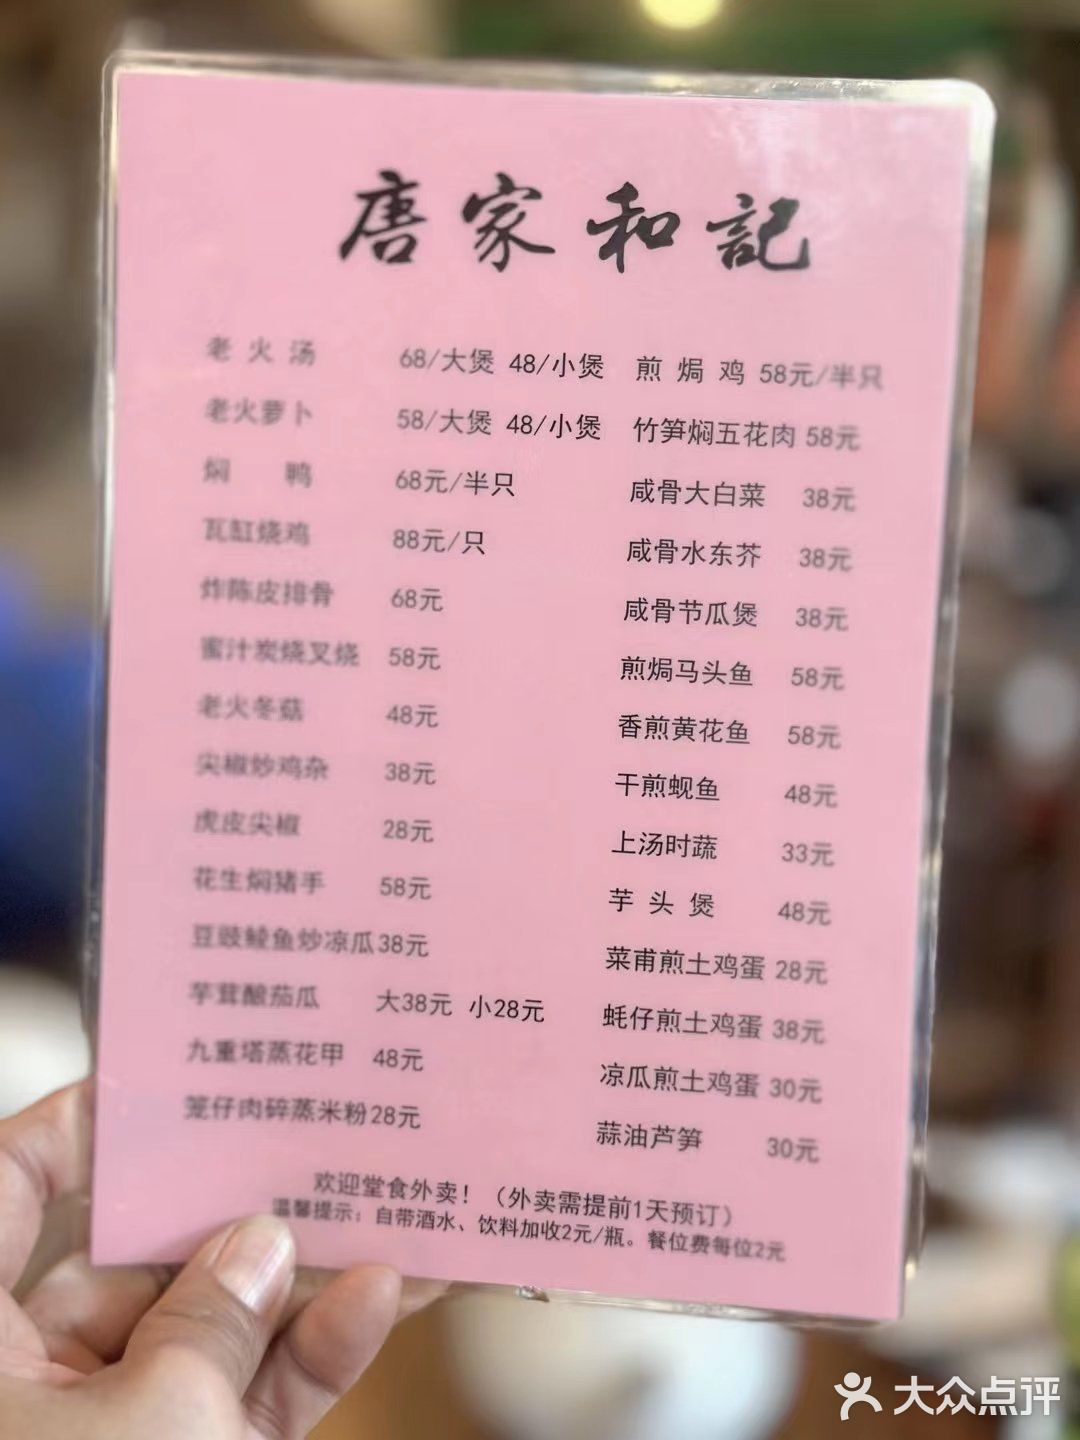 唐家和記
老火汤 68/大煲 48/小煲 煎焗鸡 58元/半只
老火萝卜 58/大煲 48/小煲 竹笋焖五花肉 58元
焖鸭 68元/半只 咸骨大白菜 38元
瓦缸烧鸡 88元/只 咸骨水东芥 38元
炸陈皮排骨 68元 咸骨节瓜煲 38元
蜜汁炭烧叉烧 58元 煎焗马头鱼 58元
老火冬菇 48元 香煎黄花鱼 58元
尖椒炒鸡杂 38元 干煎蚬鱼 48元
虎皮尖椒 28元 上汤时蔬 33元
花生焖猪手 58元 芋头煲 48元
豆豉鲮鱼炒凉瓜 38元 菜甫煎土鸡蛋 28元
芋茸酿茄瓜 大38元 小28元 蚝仔煎土鸡蛋 38元
九重塔蒸花甲 48元 凉瓜煎土鸡蛋 30元
笼仔肉碎蒸米粉 28元 蒜油芦笋 30元
欢迎堂食外卖！（外卖需提前1天预订）
温馨提示：自带酒水、饮料加收2元/瓶。餐位费每位2元
大众点评